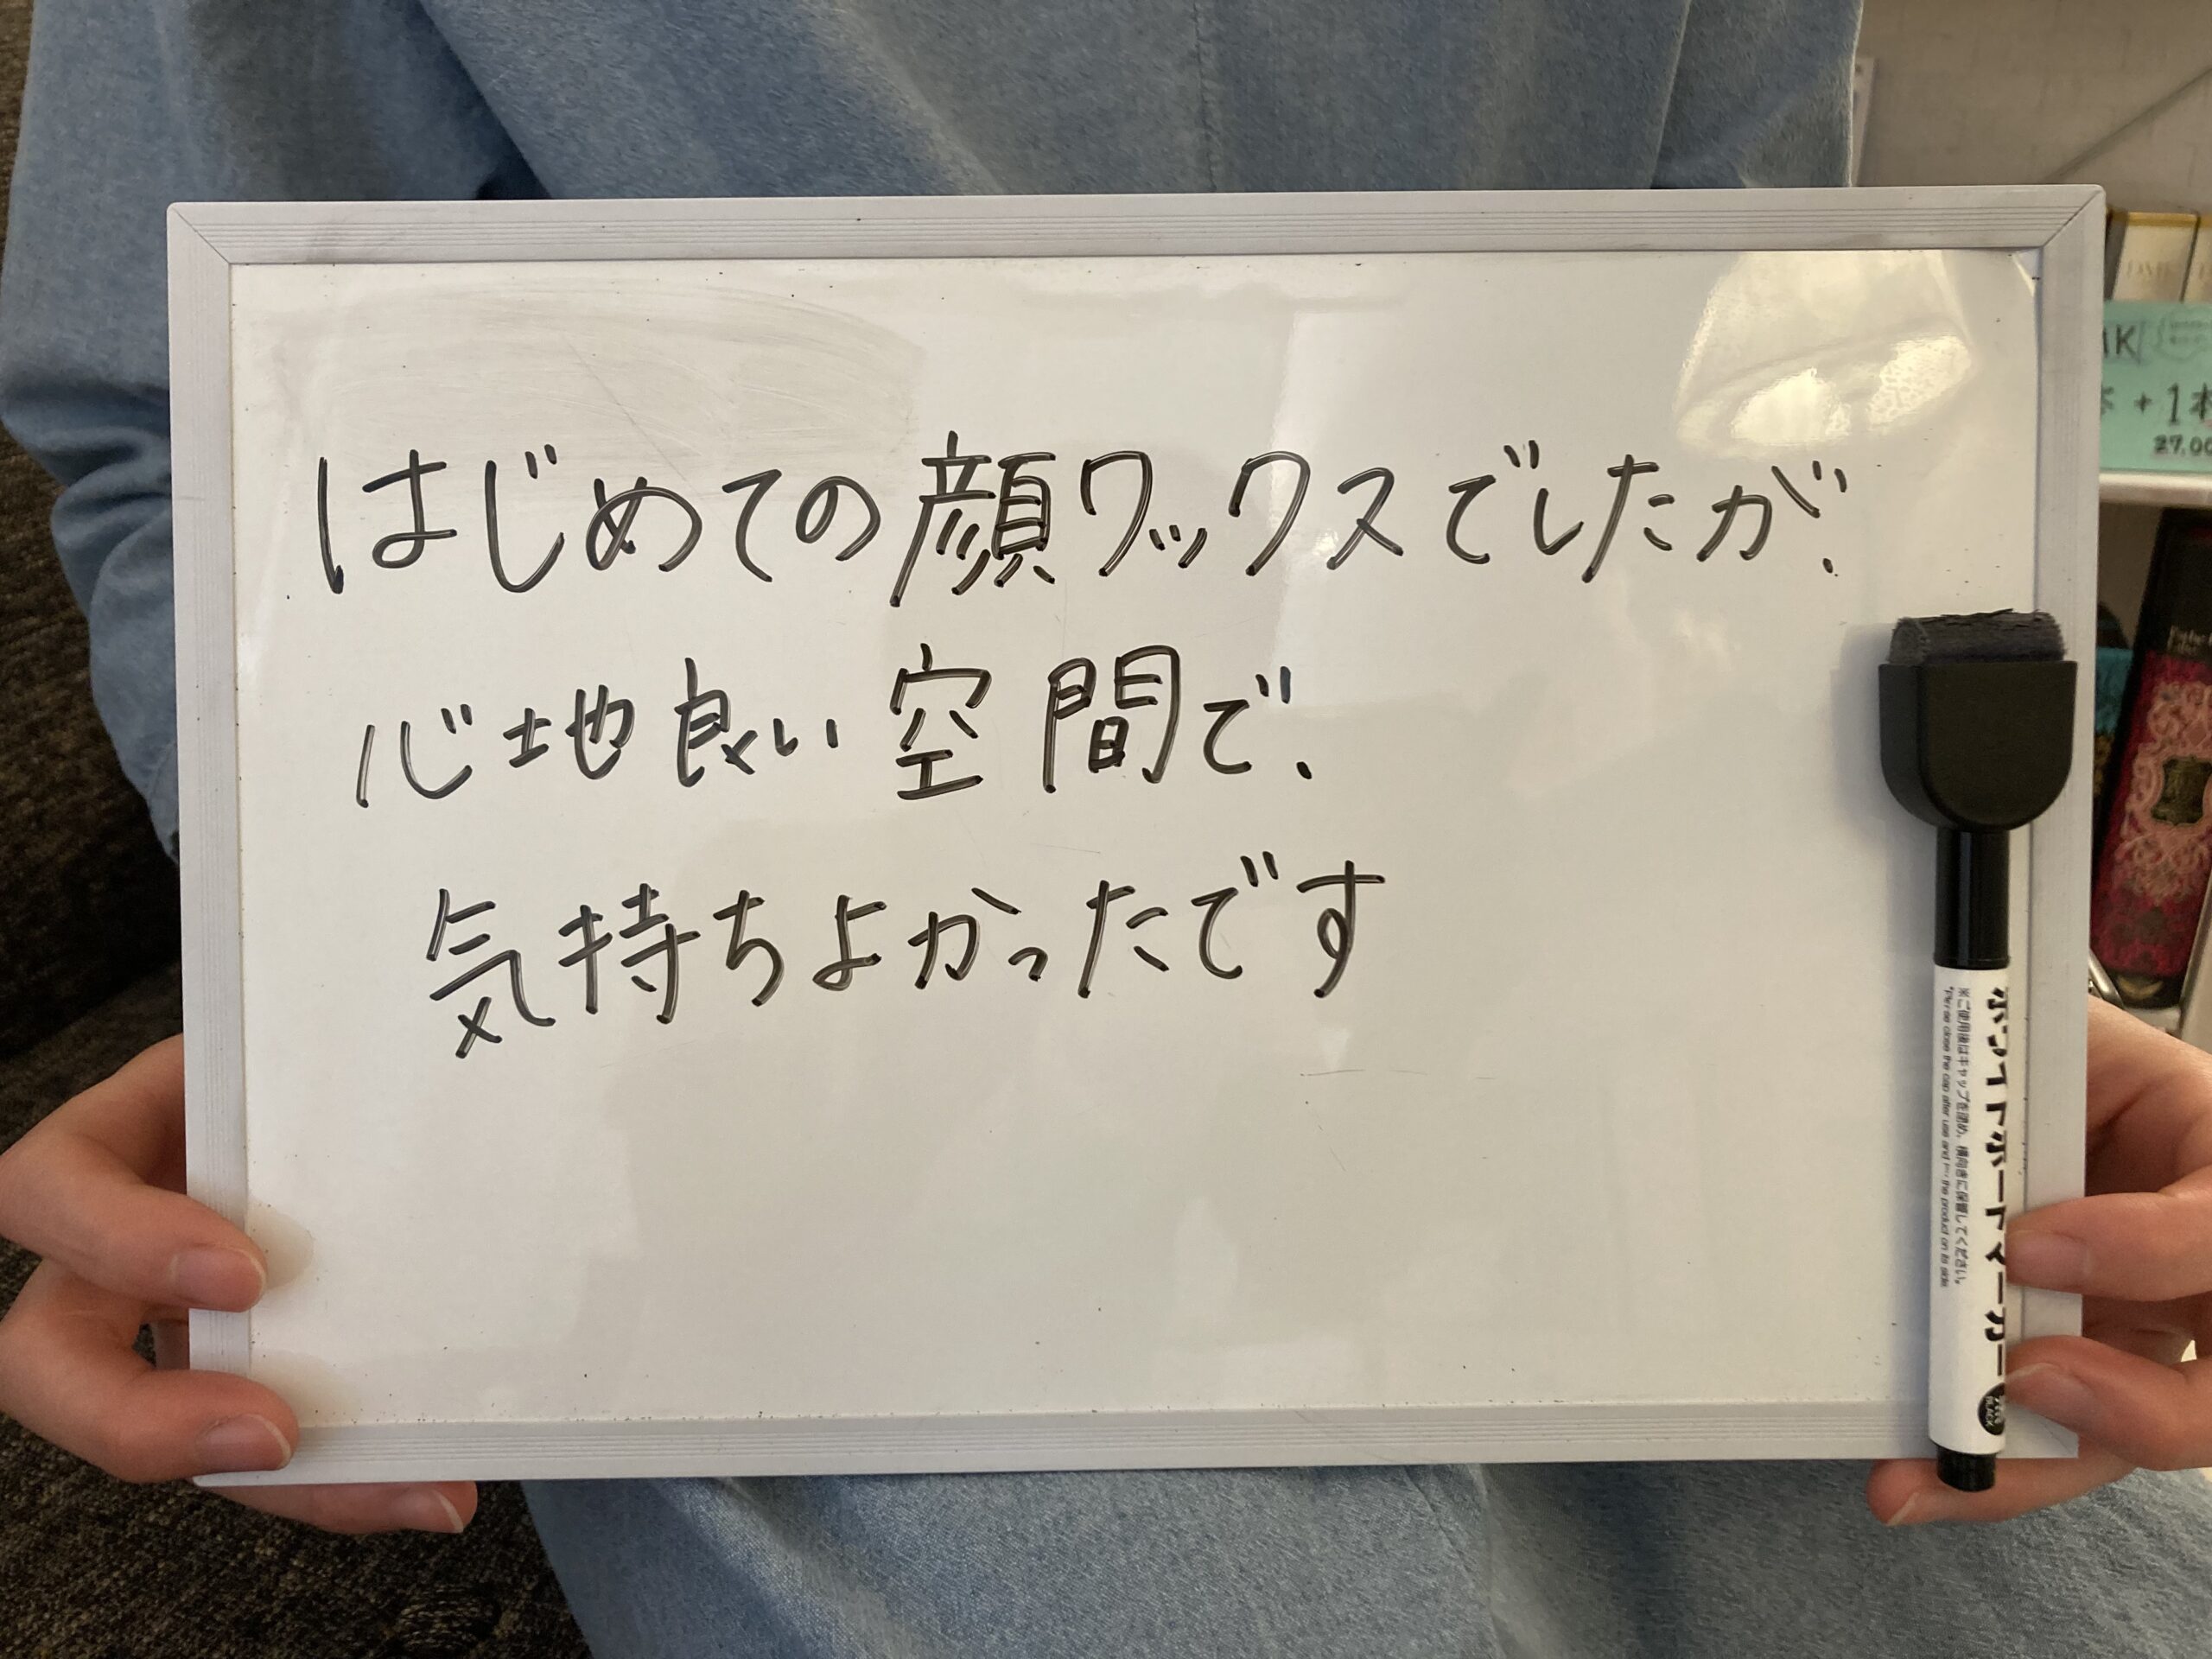 はじめての顔ワックスでしたが、
心地良い空間で、
気持ちよかったです
ホワイトボードマーカー
※ご使用後はキャップを閉め、横向きに保管してください。
+1本
27,00